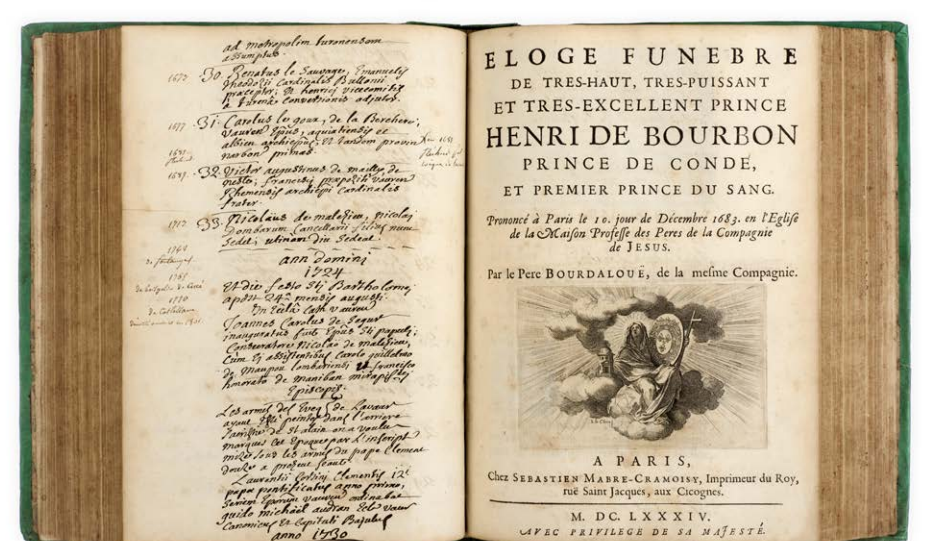 ad metropolim turonensem
assumptus
1673 30. Renatus le Sauvage, Emanuelis
Theodosii Cardinalis Bullonii
præceptor; et henrici vicecomitis
a turenâ conversionis adjutor.
1677 31. Carolus le goux, de la Berchere,
vauren Epüs, aquiensis
albien archiepüs; et tandem
narbon primas.
1687. 32. Victor augustinus de mailly de
nesle; francisci præpositi
Rhemensis archiepi Cardinalis
frater.
1712 33. Nicolaus de malezieu, nicolai
Dombarum Cancellarii filius nunc
sedet; utinam diu sedeat.
ann domini
1724
Et die festo Sti Bartholomei
apost 24â mensis augusti.
In Ecclâ Cath vauren
Joannes Carolus de Segur
inauguratus fuit Epüs Sti papuli;
Consecratore nicolao de malezieu,
Cum Ei assistentibus Carolo guillelmo
de Maupou lombariensi et francisco
honorato de maniban mirapisensi
Episcopis.
Les armes des Eveq de Lavaur
ayant peintes dans l'arriere
de St alain on a voulu
marquer cet Epoque par l'inscript
mise sous les armes du pape Clement
douze a present seant
Laurentii Corsini Clementis 12i
papæ pontificatus anno primo,
seriem Eporum vauren
guido michael audran Eclæ vaur
Canonicus et Capituli
anno 1730
ELOGE FUNEBRE
DE TRES-HAUT, TRES-PUISSANT
ET TRES-EXCELLENT PRINCE
HENRI DE BOURBON
PRINCE DE CONDE,
ET PREMIER PRINCE DU SANG.
Prononcé à Paris le 10. jour de Décembre 1683. en l'Eglise
de la Maison Professe des Peres de la Compagnie
de JESUS.
Par le Pere BOURDALOUË, de la mesme Compagnie.
A PARIS,
Chez SEBASTIEN MABRE-CRAMOISY, Imprimeur du Roy,
ruë Saint Jacques, aux Cicognes.
M. DC. LXXXIV.
AVEC PRIVILEGE DE SA MAJESTÉ.